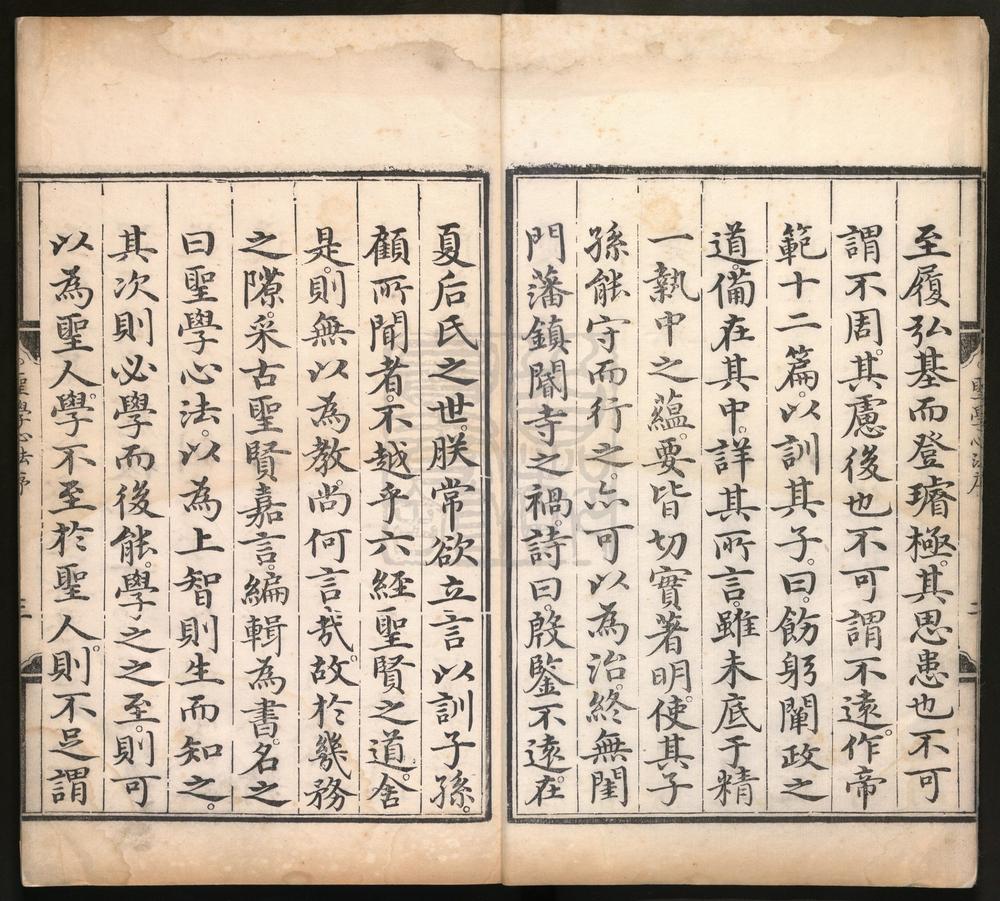 至履弘基而登璿極其思患也不可
謂不周其慮後也不可謂不遠作帝
範十二篇以訓其子曰飭躬闡政之
道備在其中詳其所言雖未底于精
一執中之蘊要皆切實著明使其子
孫能守而行之亦可以為治終無閨
門藩鎮閽寺之禍詩曰殷鑒不遠在
夏后氏之世朕常欲立言以訓子孫
顧所聞者不越乎六經聖賢之道舍
是則無以為教尚何言哉故於幾務
之隙采古聖賢嘉言編輯為書名之
曰聖學心法以為上智則生而知之
其次則必學而後能學之之至則可
以為聖人學不至於聖人則不足謂
聖學心法序
二
聖學心法序
三